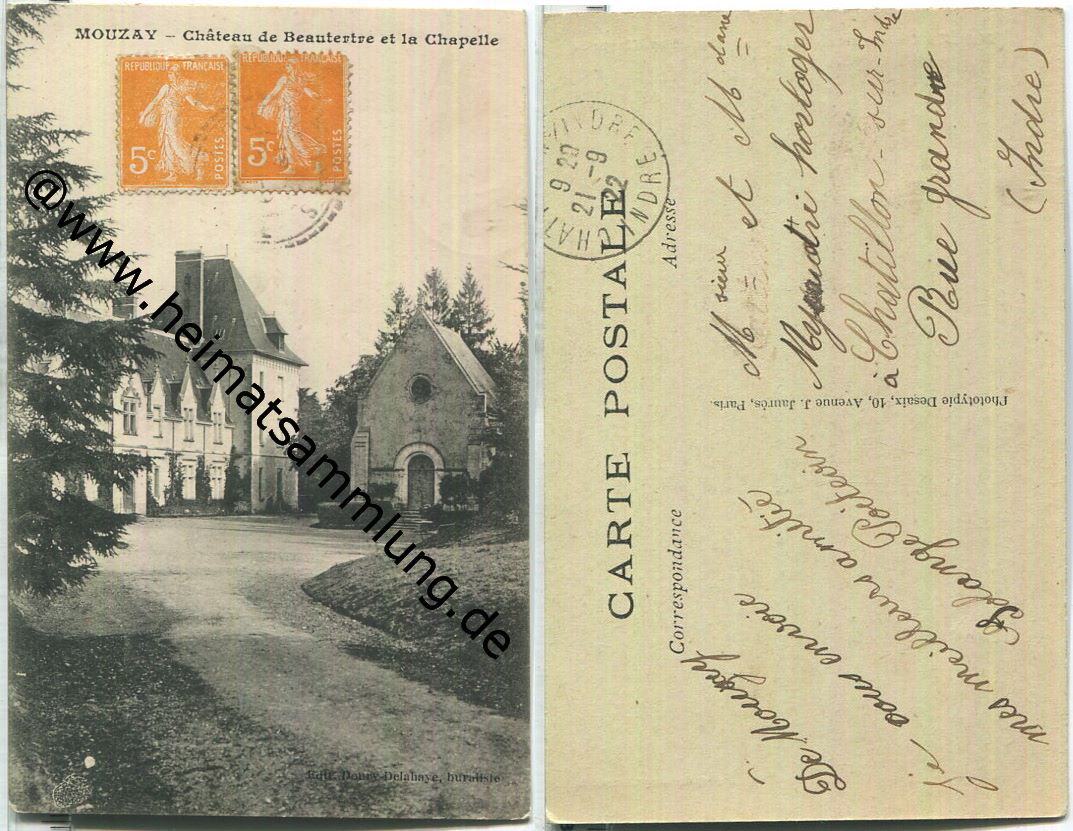 MOUZAY – Château de Beautertre et la Chapelle
REPUBLIQUE FRANÇAISE
5c
POSTES
REPUBLIQUE FRANÇAISE
5c
POSTES
@www.heimatsammlung.de
Edit. Doury-Delahaye, buraliste
CARTE POSTALE
Correspondance
Adresse
9 20
21 -9
22
INDRE
Msieur et Mdame
horloger
à Chatillon-sur-Indre
Rue grande
(Indre)
Phototypie Desaix, 10, Avenue J. Jaurès, Paris.
De Mouzay
vous envoie
mes meilleurs amitié
Solange